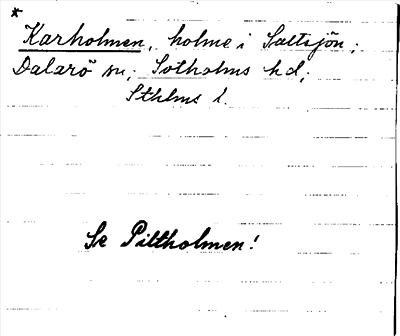 *
Karholmen, holme i Saltsjön;
Dalarö sn; Sotholms hd;
Sthlms l.
Se Piltholmen!